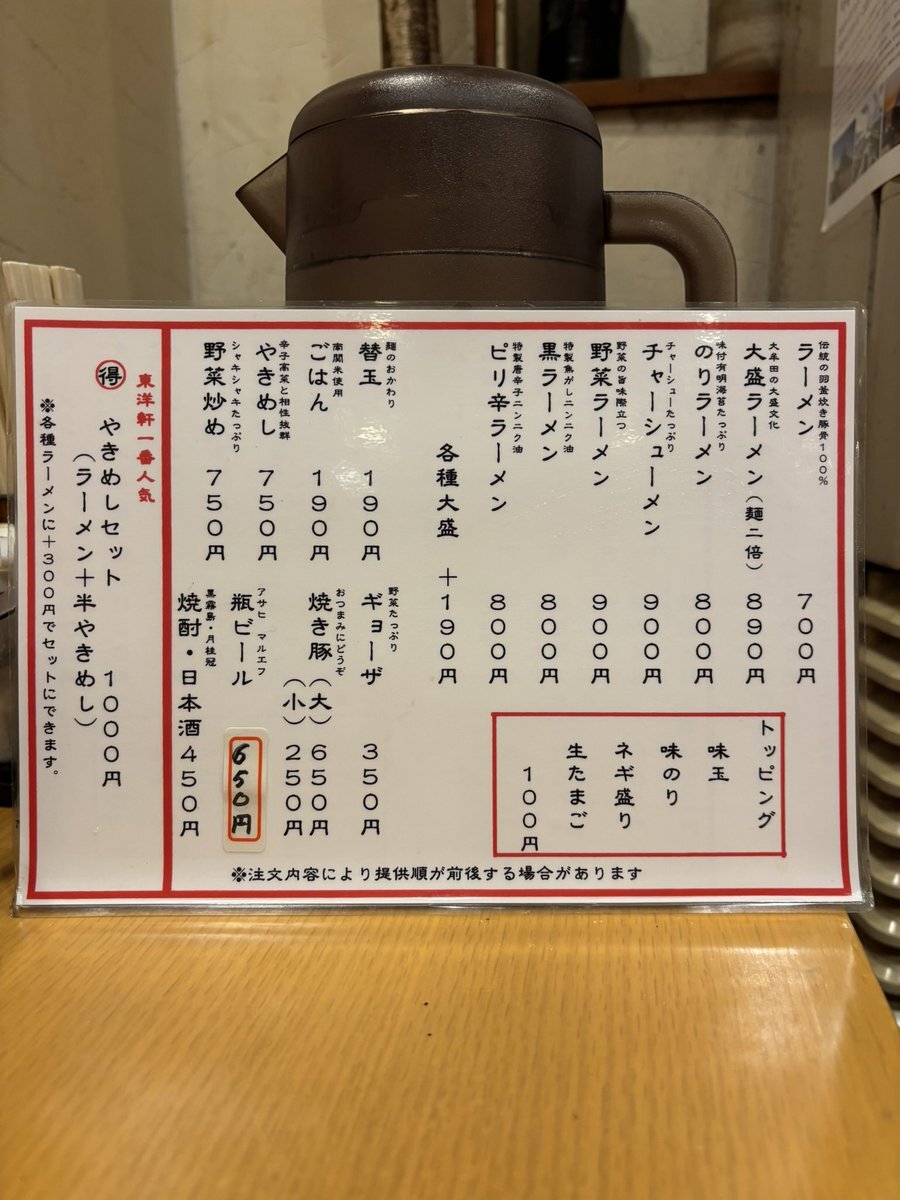 伝統の羽釜炊き豚骨100%
ラーメン 700円
大牟田の大盛文化
大盛ラーメン(麺二倍) 890円
味付有明海苔たっぷり
のりラーメン 800円
チャーシューたっぷり
チャーシューメン 900円
野菜の旨味際立つ
野菜ラーメン 900円
特製焦がしニンニク油
黒ラーメン 800円
特製唐辛子ニンニク油
ピリ辛ラーメン 800円
各種大盛 +190円
トッピング
味玉
味のり
ネギ盛り
生たまご
100円
麺のおかわり
替玉 190円
南関米使用
ごはん 190円
辛子高菜と相性抜群
やきめし 750円
シャキシャキたっぷり
野菜炒め 750円
野菜たっぷり
ギョーザ 350円
おつまみにどうぞ
焼き豚(大) 650円
(小) 250円
アサヒ マルエフ
瓶ビール 650円
黒霧島・月桂冠
焼酎・日本酒 450円
※注文内容により提供順が前後する場合があります
東洋軒一番人気
得 やきめしセット 1000円
(ラーメン+半やきめし)
※各種ラーメンに+300円でセットにできます。